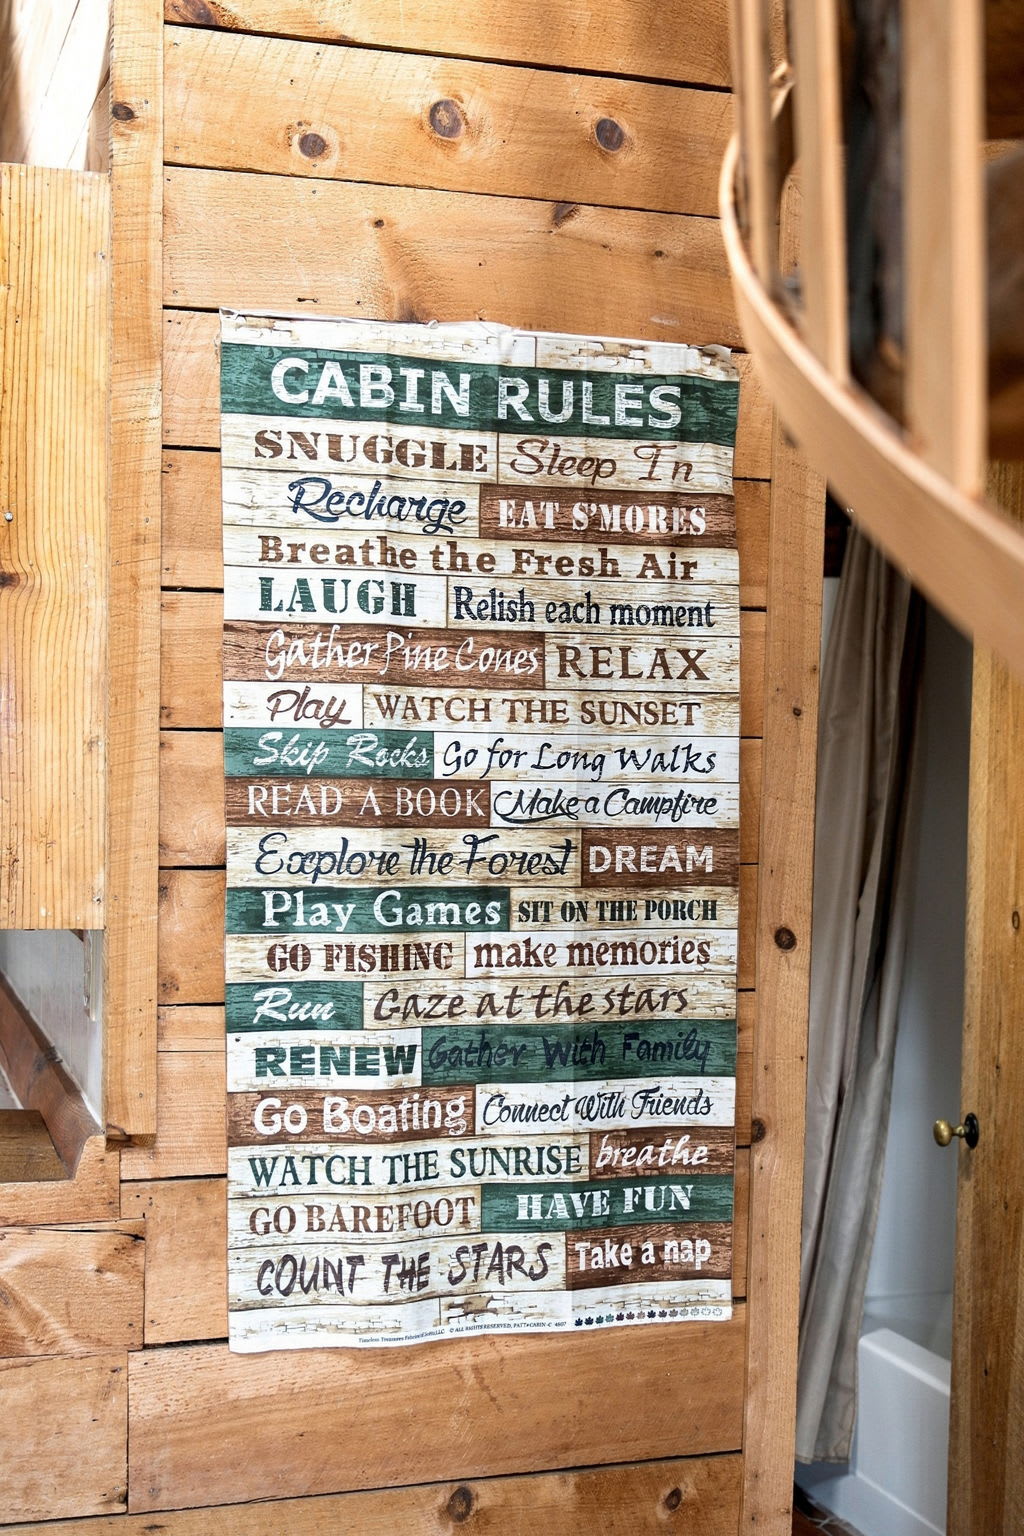 CABIN RULES
SNUGGLE Sleep In
Recharge EAT S'MORES
Breathe the Fresh Air
LAUGH Relish each moment
Gather Pine Cones RELAX
Play WATCH THE SUNSET
Skip Rocks Go for Long Walks
READ A BOOK Make a Campfire
Explore the Forest DREAM
Play Games SIT ON THE PORCH
GO FISHING make memories
Run Gaze at the stars
RENEW Gather With Family
Go Boating Connect With Friends
WATCH THE SUNRISE breathe
GO BAREFOOT HAVE FUN
COUNT THE STARS Take a nap
Timeless Treasures Fabrics of SoHo, LLC © ALL RIGHTS RESERVED, PATT# CABIN-C